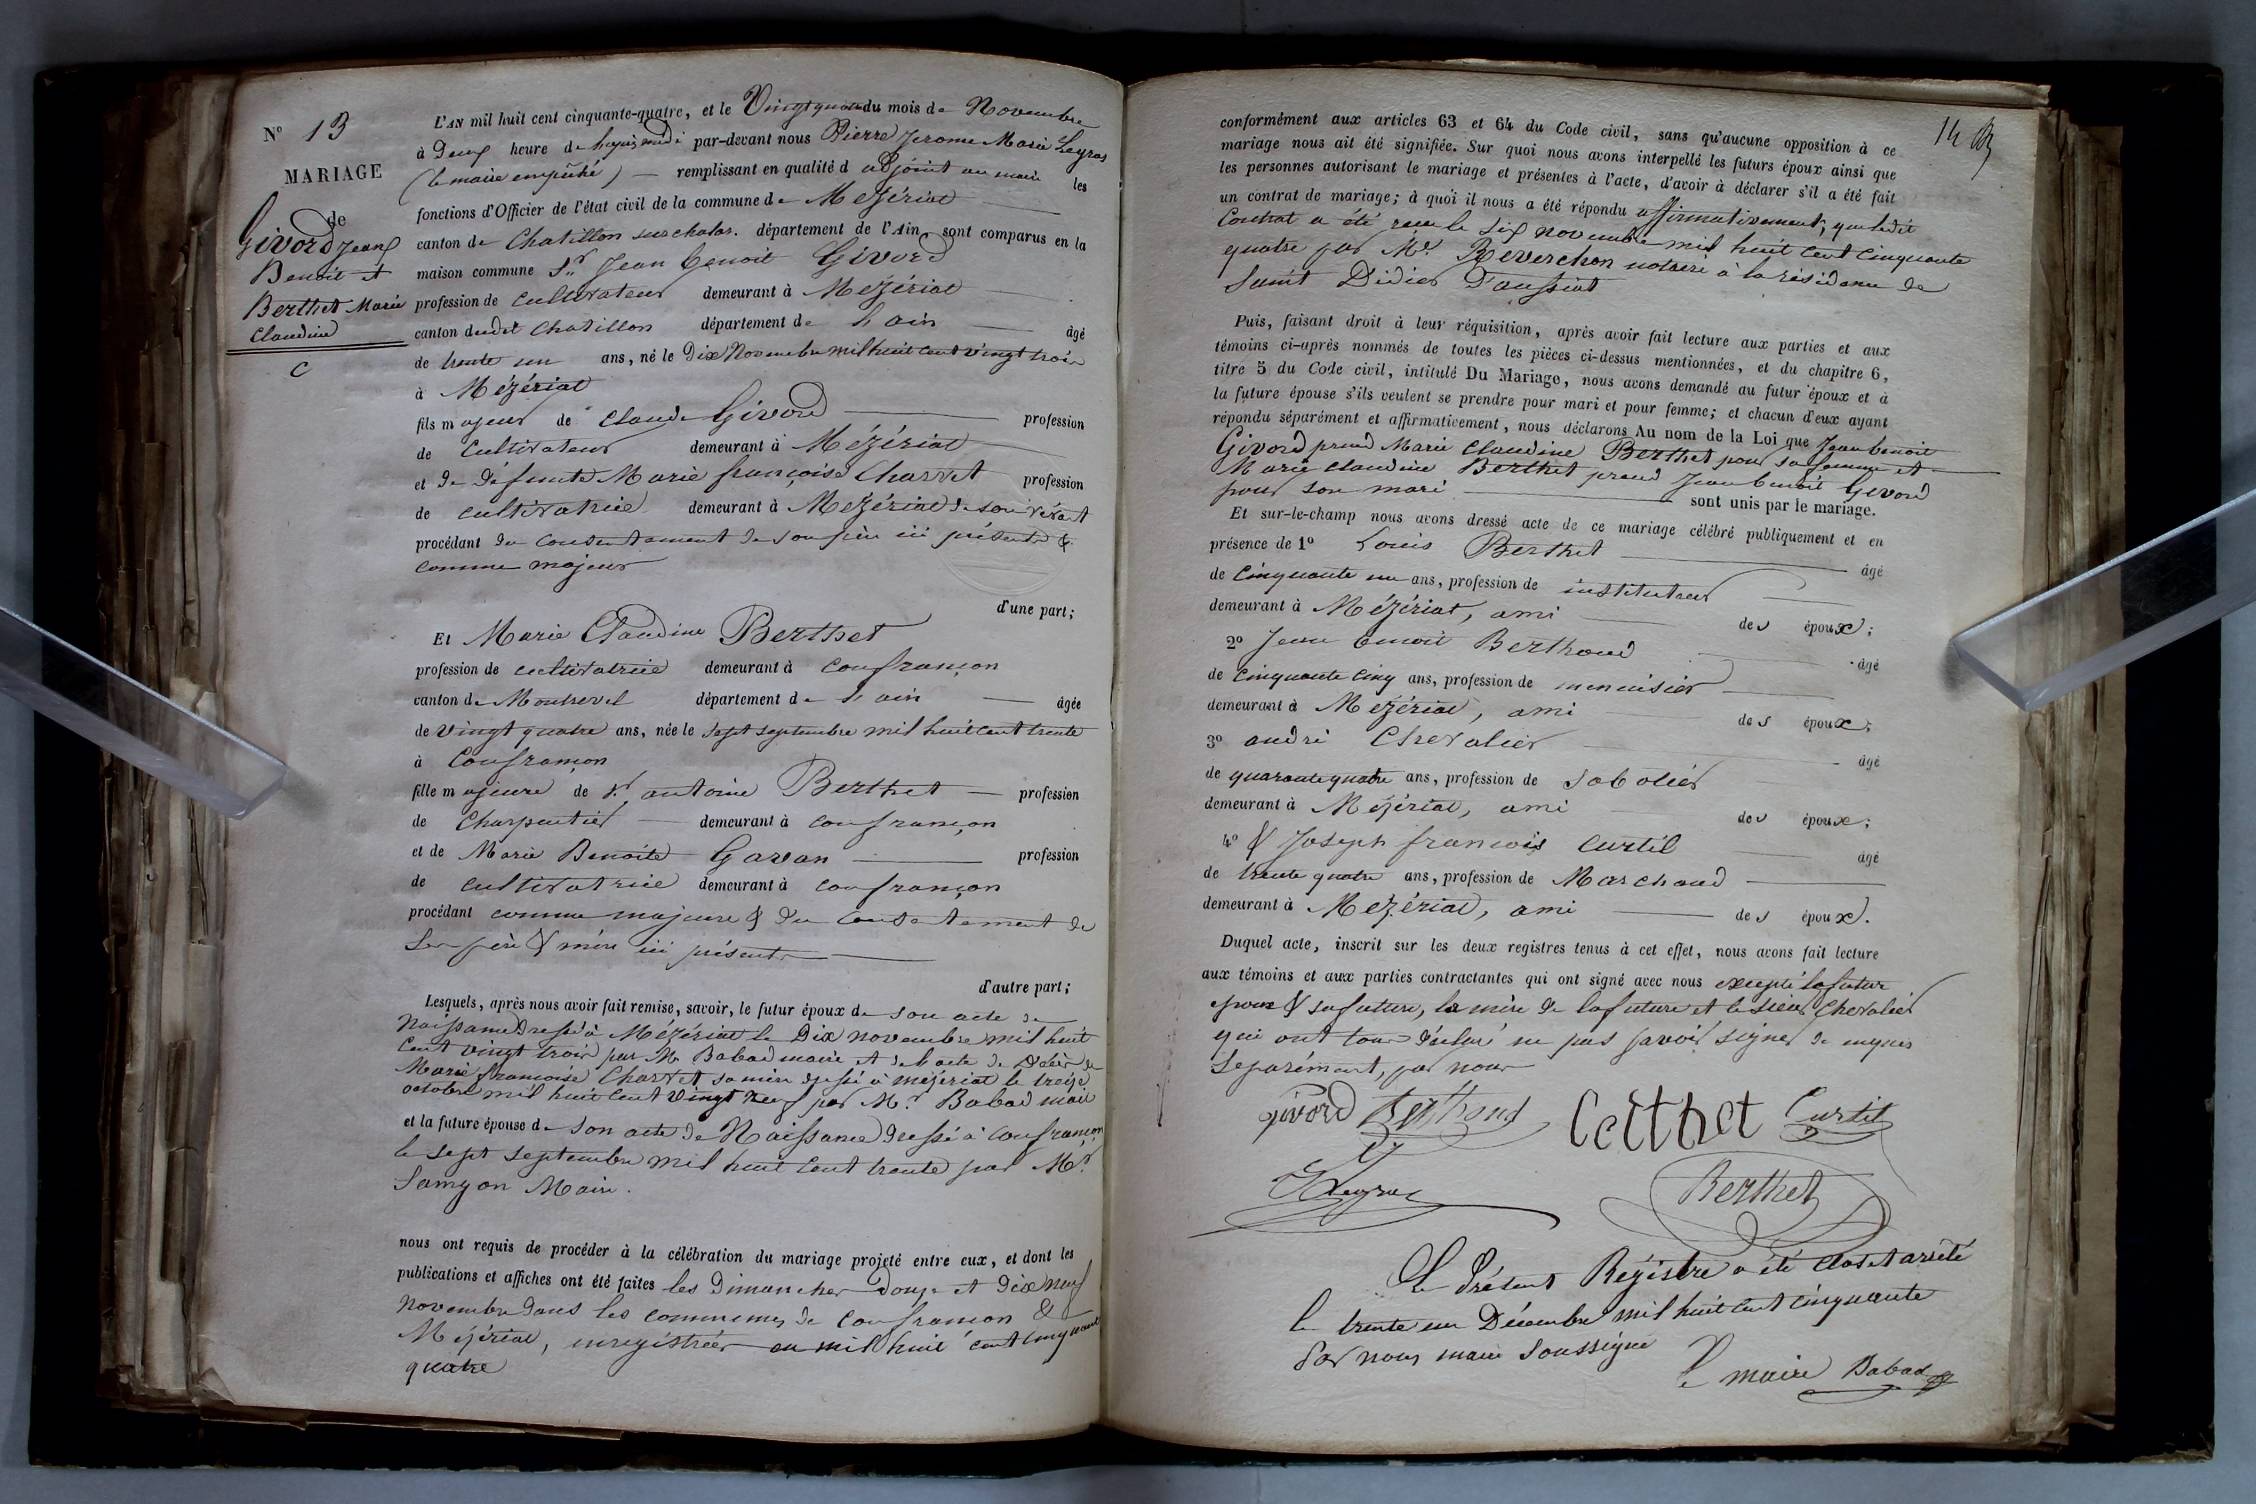 N° 13
MARIAGE
de
Givord Jean
Benoit et
Berthet Marie
Claudine
C
L'AN mil huit cent cinquante-quatre, et le Vingt quatre du mois de Novembre
à Deux heure de l'après midi par-devant nous Pierre Jerome Marie Legras
(le maire empêché) — remplissant en qualité d adjoint au maire les
fonctions d'Officier de l'état civil de la commune de Mézériat
canton de Chatillon sur chalar. département de l'Ain, sont comparus en la
maison commune Sr Jean benoit Givord
profession de cultivateur demeurant à Mézériat
canton dudit Chatillon département de l'ain âgé
de trente un ans, né le Dix Novembre mil huit cent vingt trois
à Mézériat
fils majeur de Claude Givord profession
de Cultivateur demeurant à Mézériat
et de défunte Marie françoise Charvet profession
de cultivatrice demeurant à Mézériat de son vivant
procédant du consentement de son père ici présent &
comme majeur
d'une part;
Et Marie Claudine Berthet
profession de cultivatrice demeurant à Confrançon
canton de Montrevel département de l'ain âgée
de vingt quatre ans, née le sept septembre mil huit cent trente
à Confrançon
fille majeure de Sr antoine Berthet — profession
de Charpentier — demeurant à Confrançon
et de Marie Benoite Gavan profession
de cultivatrice demeurant à Confrançon
procédant comme majeure & du consentement de
ses père & mère ici présents
d'autre part;
Lesquels, après nous avoir fait remise, savoir, le futur époux de son acte de
Naissance dressé à Mézériat le Dix novembre mil huit
cent vingt trois par Mr Babad maire et de l'acte de Décès de
Marie françoise Charvet sa mère dressé à mézériat le treize
octobre mil huit cent vingt neuf par Mr Babad maire
et la future épouse de son acte de Naissance dressé à Confrançon
le sept septembre mil huit cent trente par Mr
Samyon Maire.
nous ont requis de procéder à la célébration du mariage projeté entre eux, et dont les
publications et affiches ont été faites les Dimanches Douze et Dix neuf
Novembre dans les communes de Confrançon &
Mézériat, enregistrées en mil huit cent cinquante
quatre
14
conformément aux articles 63 et 64 du Code civil, sans qu'aucune opposition à ce
mariage nous ait été signifiée. Sur quoi nous avons interpellé les futurs époux ainsi que
les personnes autorisant le mariage et présentes à l'acte, d'avoir à déclarer s'il a été fait
un contrat de mariage; à quoi il nous a été répondu affirmativement, que ledit
Contrat a été recu le six novembre mil huit cent cinquante
quatre par Me Reverchon notaire à la résidence de
Saint Didier D'aussiat
Puis, faisant droit à leur réquisition, après avoir fait lecture aux parties et aux
témoins ci-après nommés de toutes les pièces ci-dessus mentionnées, et du chapitre 6,
titre 5 du Code civil, intitulé Du Mariage, nous avons demandé au futur époux et à
la future épouse s'ils veulent se prendre pour mari et pour femme; et chacun d'eux ayant
répondu séparément et affirmativement, nous déclarons Au nom de la Loi que Jean benoit
Givord prend Marie Claudine Berthet pour sa femme et
Marie Claudine Berthet prend Jean benoit Givord
pour son mari sont unis par le mariage.
Et sur-le-champ nous avons dressé acte de ce mariage célébré publiquement et en
présence de 1° Louis Berthet âgé
de Cinquante un ans, profession de instituteur
demeurant à Mézériat, ami des époux;
2° Jean benoit Berthoud âgé
de Cinquante cinq ans, profession de menuisier
demeurant à Mézériat, ami des époux;
3° andré Chevalier âgé
de quarante quatre ans, profession de Sabotier
demeurant à Mézériat, ami des époux;
4° & Joseph françois Curtil âgé
de trente quatre ans, profession de Marchand
demeurant à Mézériat, ami des époux.
Duquel acte, inscrit sur les deux registres tenus à cet effet, nous avons fait lecture
aux témoins et aux parties contractantes qui ont signé avec nous excepté le futur
époux & sa future, la mère de la future et le sieur Chevalier
qui ont tous déclaré ne pas savoir signer de enquis
séparément, par nous
givord Berthoud Berthet Curtil
Legras
Berthet
Le Présent Régistre a été clos et arrêté
le trente un Décembre mil huit cent cinquante
par nous maire soussigné
Le maire Babad